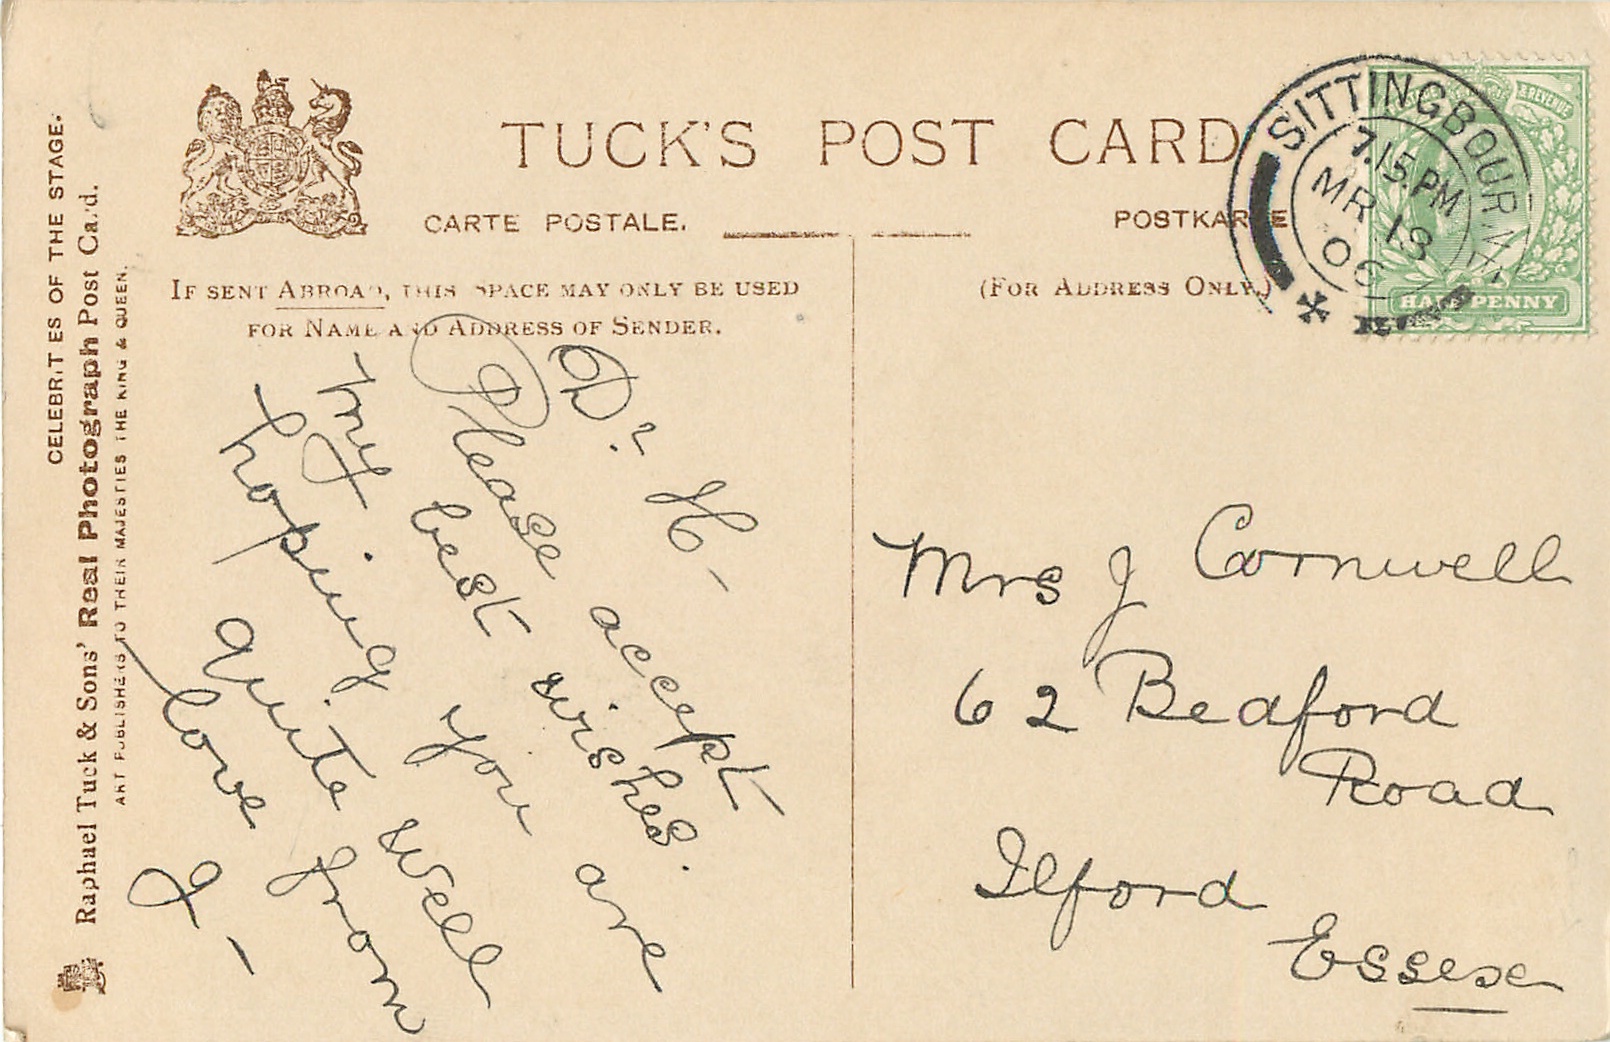 CELEBRITIES OF THE STAGE.
Raphael Tuck & Sons' Real Photograph Post Card.
ART PUBLISHERS TO THEIR MAJESTIES THE KING & QUEEN.
TUCK'S POST CARD
CARTE POSTALE.
POSTKARTE
IF SENT ABROAD, THIS SPACE MAY ONLY BE USED
FOR NAME AND ADDRESS OF SENDER.
(FOR ADDRESS ONLY.)
SITTINGBOURNE
7.15.PM
MR 18
& REVENUE
HALFPENNY
Dr H-
Please accept
my best wishes.
hoping you are
quite well
love from
Mrs J Cornwell
62 Bedford
Road
Ilford
Essex